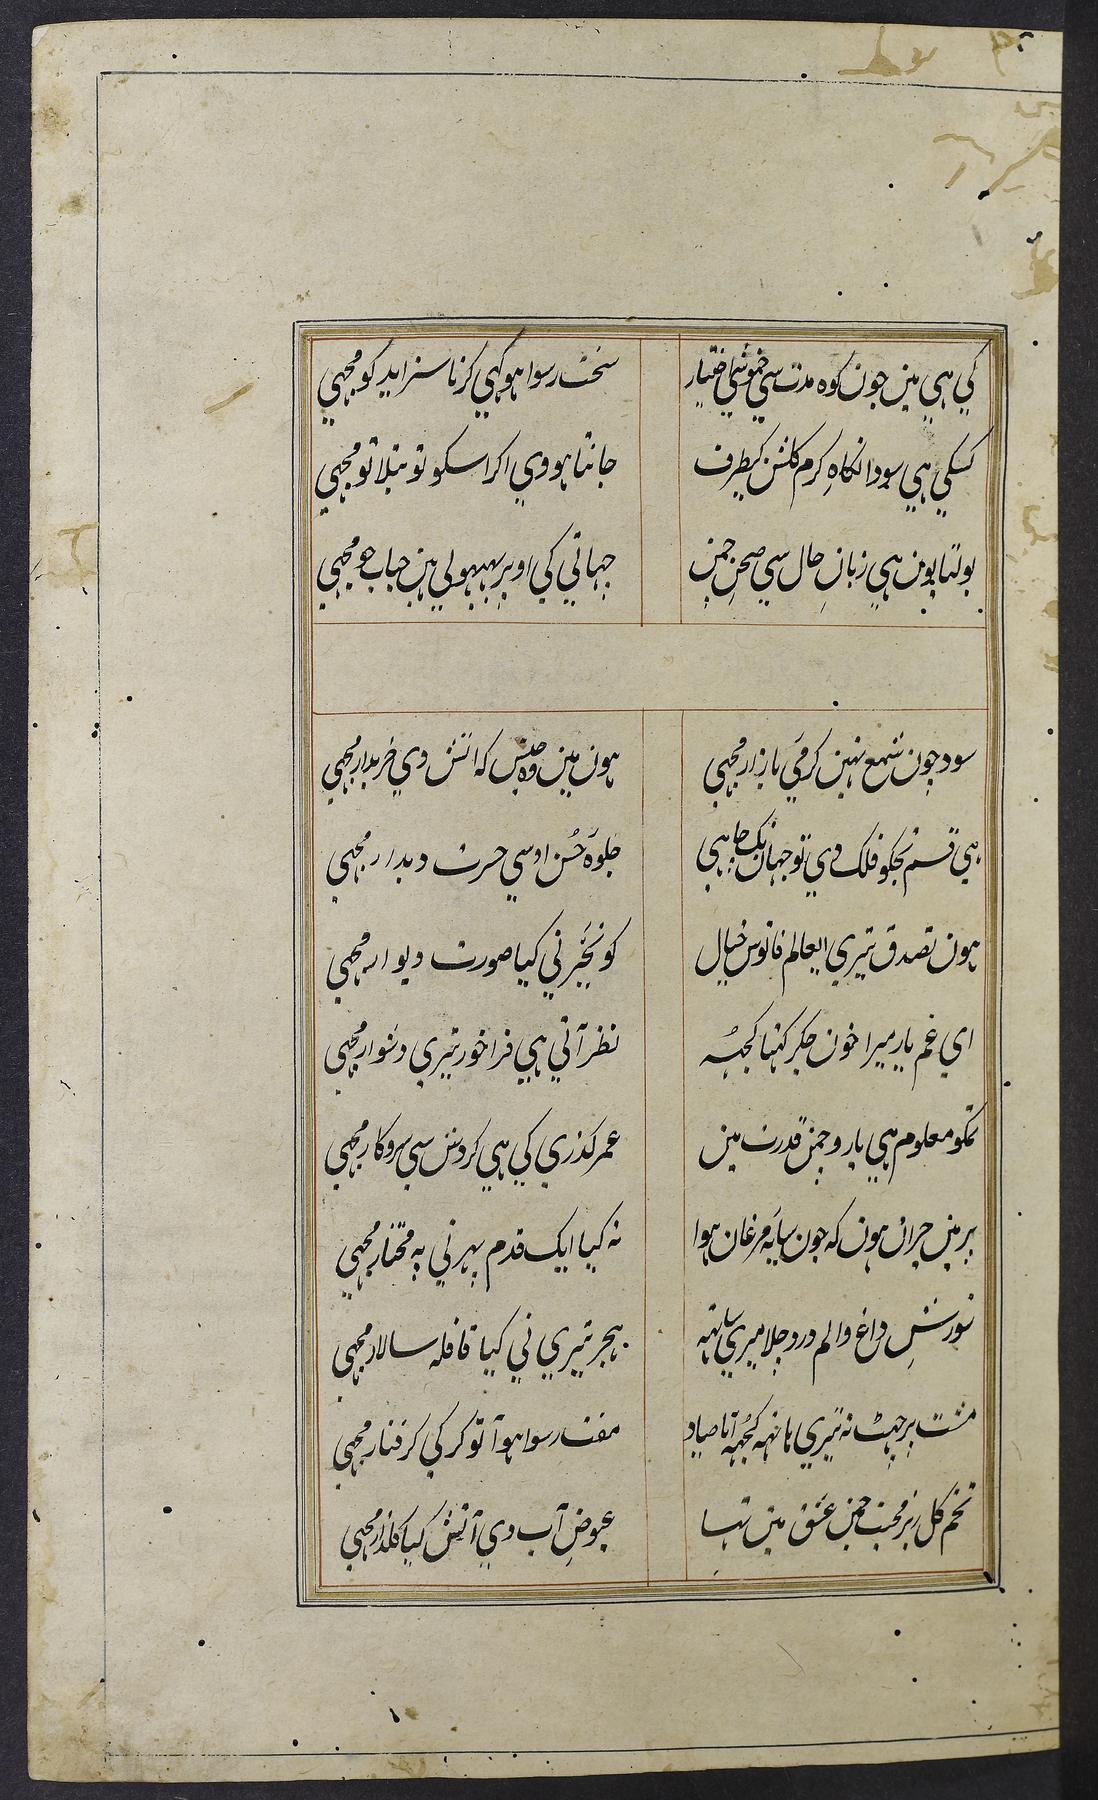 کی ہی مین جون کوہ مدت سی خموشی اختیار سخت رسوا ہو کہی کرنا سزا ید کو مجہی
کسکی ہی سودا نکاہِ کرم کلشن کیطرف جانتا ہووی اکر اسکو تو بتلا تو مجہی
بولتا یون ہی زبانِ حال سی صحنِ چمن چہاتی کی اوپر پہپہولی ہین حباب جو مجہی
سود جون شمع نہین کرمیَ بازار مجہی ہون مین وہ جنس کہ آتش دی خریدار مجہی
ہی قسم تجکو فلک دی تو جہانتک چاہی جلوہَ حُسن اوسی حسرت دیدار مجہی
ہون تصدق تیری ایعالم فانوس خیال کو نجیر نی کیا صورت دیوار مجہی
ای غم یار میرا خون جکر کہتا کجہہ نظر آتی ہی فراخور تیری دشوار مجہی
تمکو معلوم ہی یارو چمن قدرت مین عمر کذری کی ہی کردش سی سروکار مجہی
پر مین حیران ہون کہ جون سایہَ مرغان ہوا نہ کیا ایک قدم پہرنی پہ مختار مجہی
شورشِ داغ و الم درد چلا میری ساتہہ ہجر تیری نی کیا قافلہ سالار مجہی
مشت پر چہٹ نہ تیری ہاتہہ کجہہ آتا صیاد مفت رسوا ہوا تو کرکی کرفتار مجہی
تخم کل ریز محبت چمن عشق مین تہا عیوضِ آب دی آتش کیا کلذار مجہی